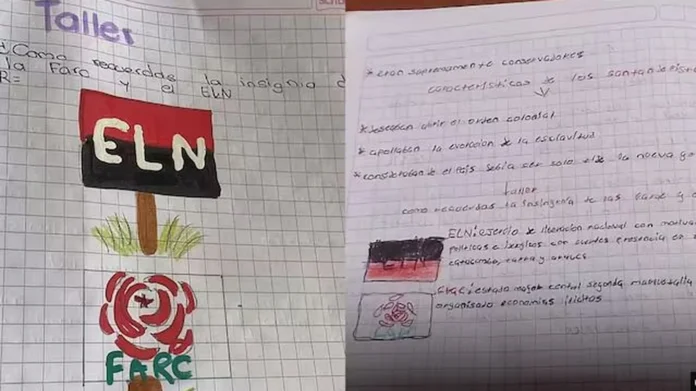 Taller
¿Como recuerdas la insignia d
la Farc y el ELN
R=
ELN
FARC
* eran supremamente conservadores
caracteristicas de los santanderist
* deseaban abrir el orden colonial
* apollaban la evorcion de la esclavitud
* consideraban q el pais sebia ser solo
la nueva g
taller
como recuerdas la insingnia de las Farc y
ELN: ejercito de liberacion nacional con motiva
politicas e
con fuertes presencia en
catatumbo,
y arauca
ELN
FARC: estado mayor central segunda marquetalia
organisado economias ilicitas